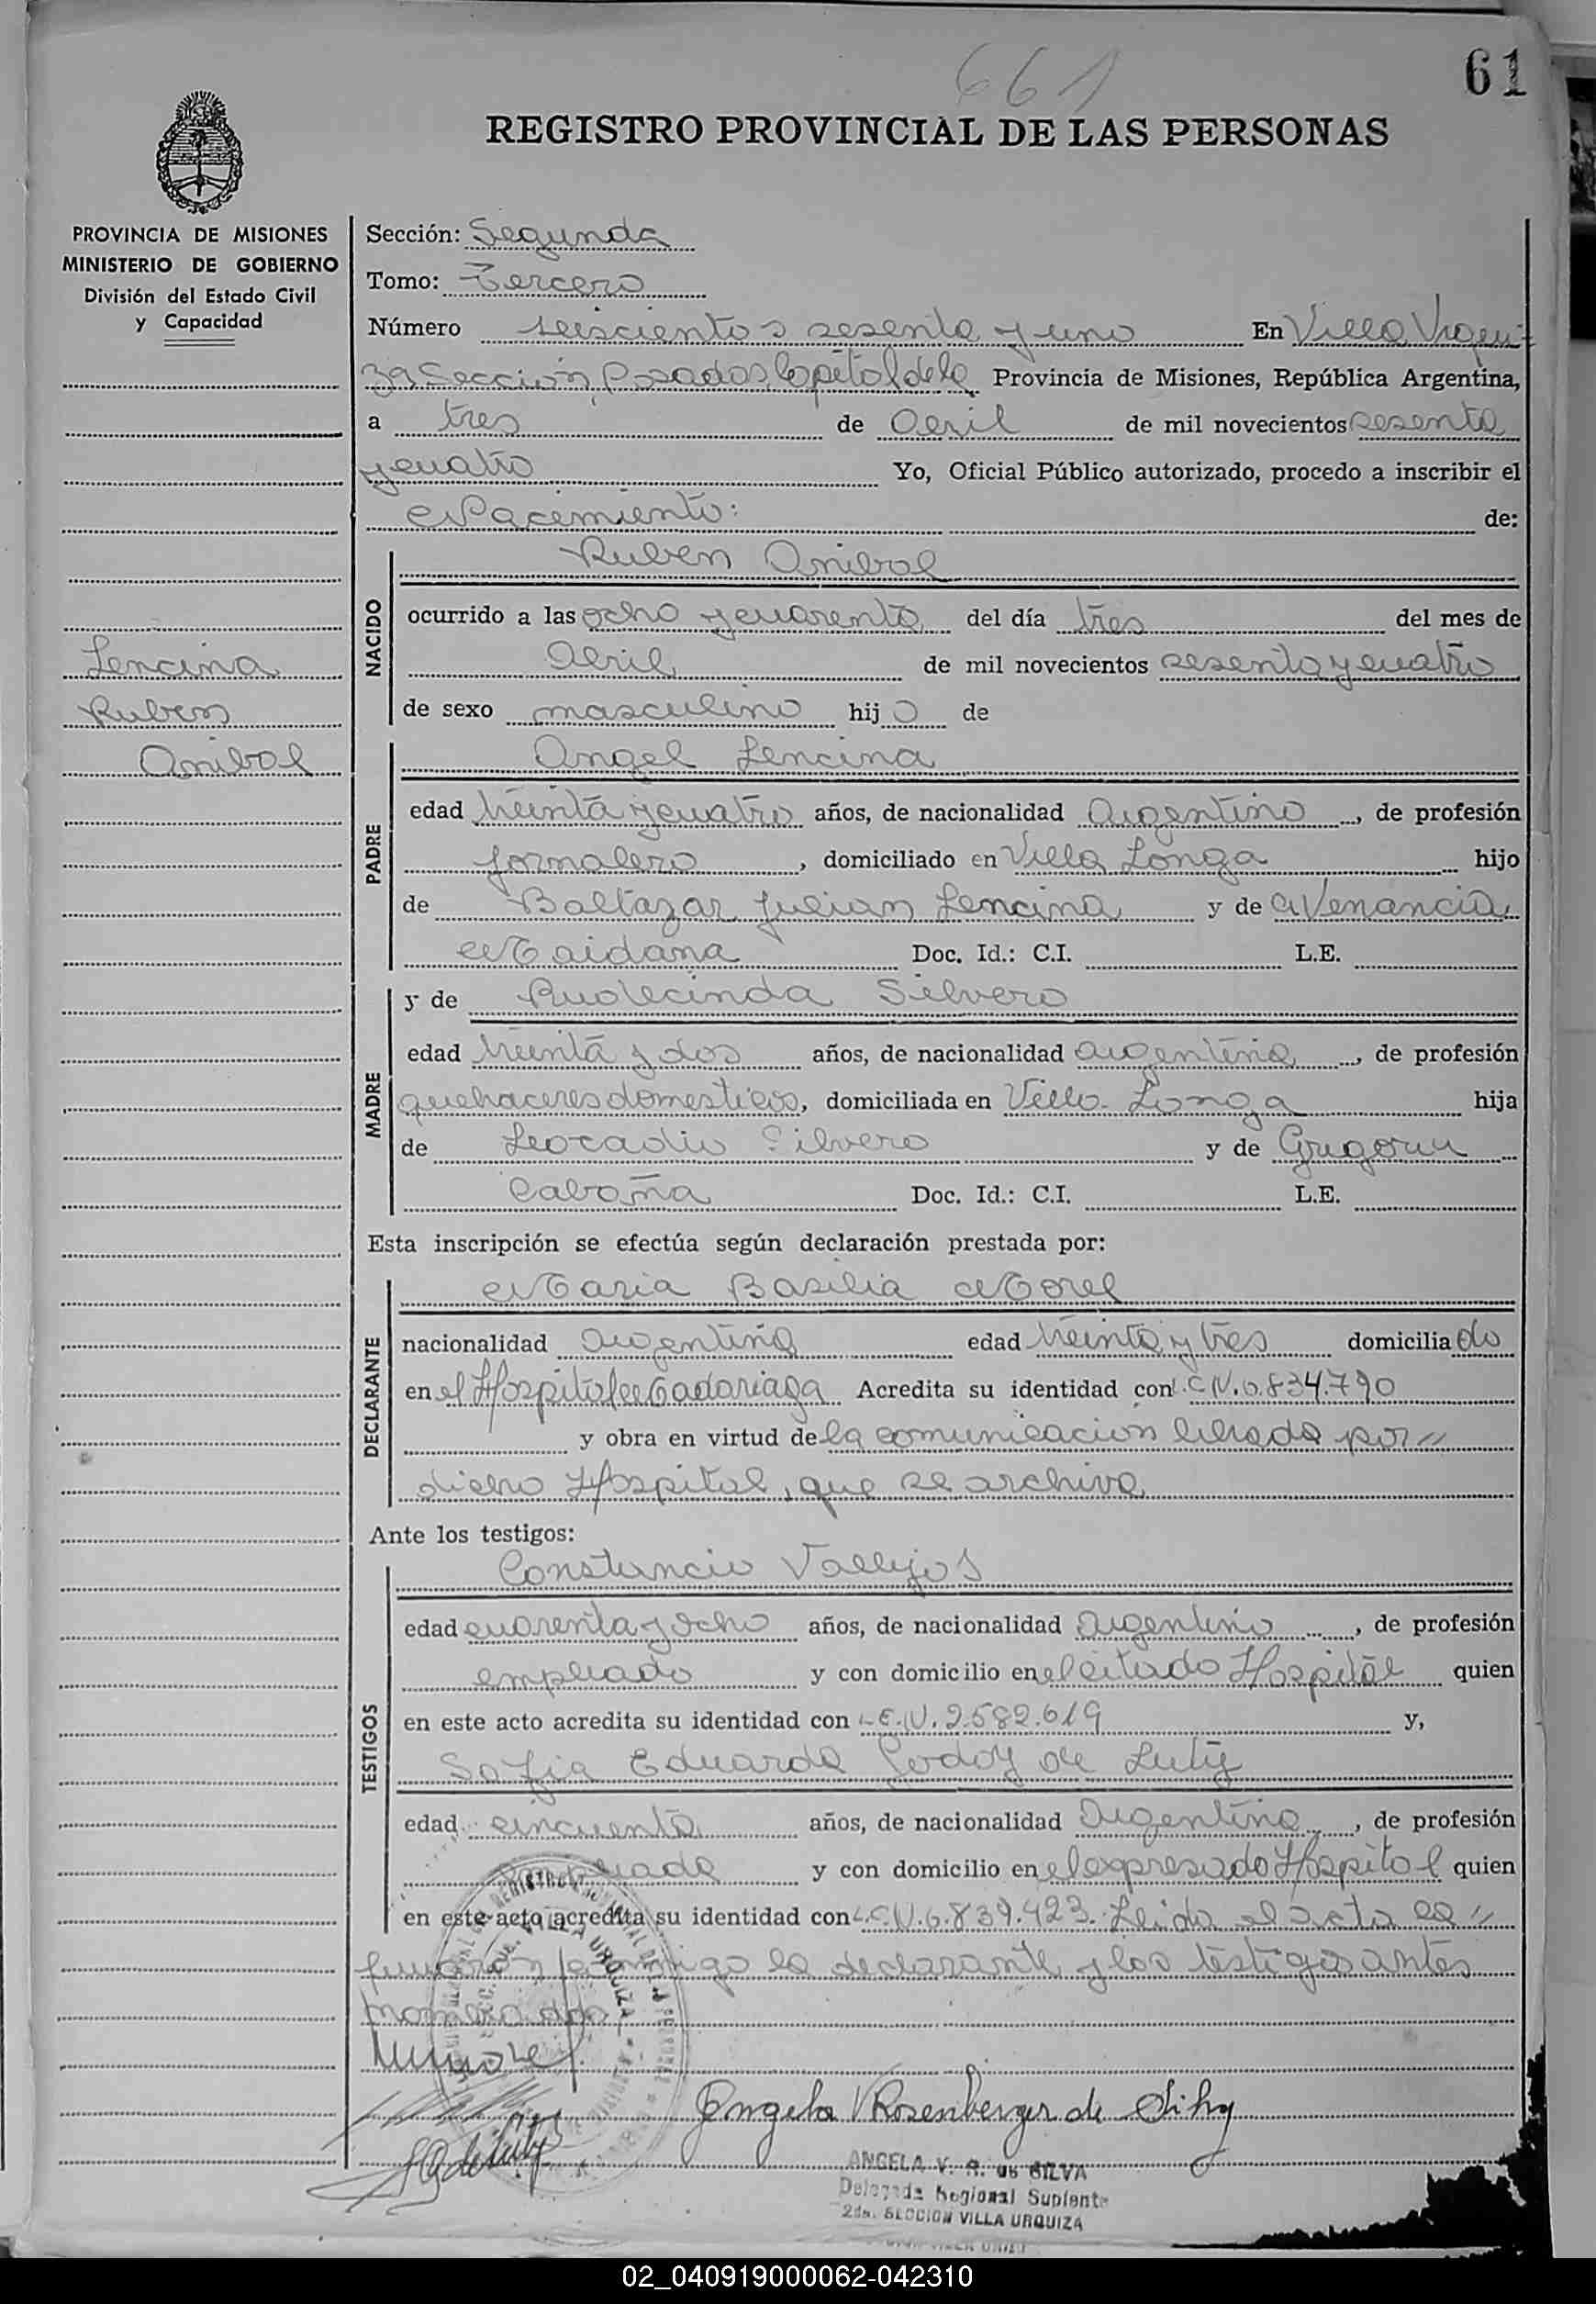 661
61
REGISTRO PROVINCIAL DE LAS PERSONAS
PROVINCIA DE MISIONES
MINISTERIO DE GOBIERNO
División del Estado Civil
y Capacidad
Lencina
Ruben
Anibal
Sección: Segunda
Tomo: Tercero
Número seiscientos sesenta y uno En Villa Urqui-
za Sección Posadas Capital de la Provincia de Misiones, República Argentina,
a tres de Abril de mil novecientos sesenta
y cuatro Yo, Oficial Público autorizado, procedo a inscribir el
Nacimiento: de:
NACIDO
Ruben Anibal
ocurrido a las ocho y cuarenta del día tres del mes de
Abril de mil novecientos sesenta y cuatro
de sexo masculino hijo de
PADRE
Angel Lencina
edad treinta y cuatro años, de nacionalidad Argentino, de profesión
jornalero, domiciliado en Villa Longa hijo
de Baltazar Julian Lencina y de Venancia
Maidana Doc. Id.: C.I. L.E.
MADRE
y de Rudecinda Silvero
edad treinta y dos años, de nacionalidad argentina, de profesión
quehaceres domesticos, domiciliada en Villa Longa hija
de Leocadio Silvero y de Gregoria
Cabaña Doc. Id.: C.I. L.E.
Esta inscripción se efectúa según declaración prestada por:
DECLARANTE
Maria Basilia Morel
nacionalidad argentina edad treinta y tres domiciliado
en el Hospital Madariaga Acredita su identidad con L.C.N. 6.834.790
y obra en virtud de la comunicacion librada por //
dicho Hospital, que se archiva
Ante los testigos:
TESTIGOS
Constancio Vallejos
edad cuarenta y ocho años, de nacionalidad Argentino, de profesión
empleado y con domicilio en el citado Hospital quien
en este acto acredita su identidad con L.E.N. 2.582.619 y,
Sofia Eduarda Godoy de Luty
edad cincuenta años, de nacionalidad Argentina, de profesión
empleada y con domicilio en el expresado Hospital quien
en este acto acredita su identidad con L.C.N. 6.839.423. Leida el acta la //
firmaron conmigo la declarante y los testigos antes
nombrados
Angela V Rosenberger de Silva
ANGELA V. R. de SILVA
Delegada Regional Suplente
2da. SECCION VILLA URQUIZA
02_040919000062-042310